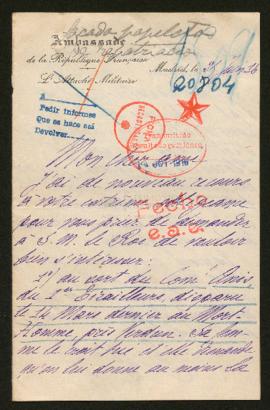 Ambassade
de la République Française
L'Attaché Militaire
Madrid, le
20804
A
Pedir informes
Que se hace acá
Devolver
Fecho
e.a.a.
Mon cher ami
J'ai de nouveau recours
à votre extrême obligeance
pour vous prier de demander
à S.M. le Roi de vouloir
bien s'intéresser:
1°) au sort du Com
du 1er Tirailleurs, disparu
le 14 Mars dernier au Mort
Homme, près Verdun. Sa fem-
me le croit tué et elle demande
qu'on lui donne au moins la